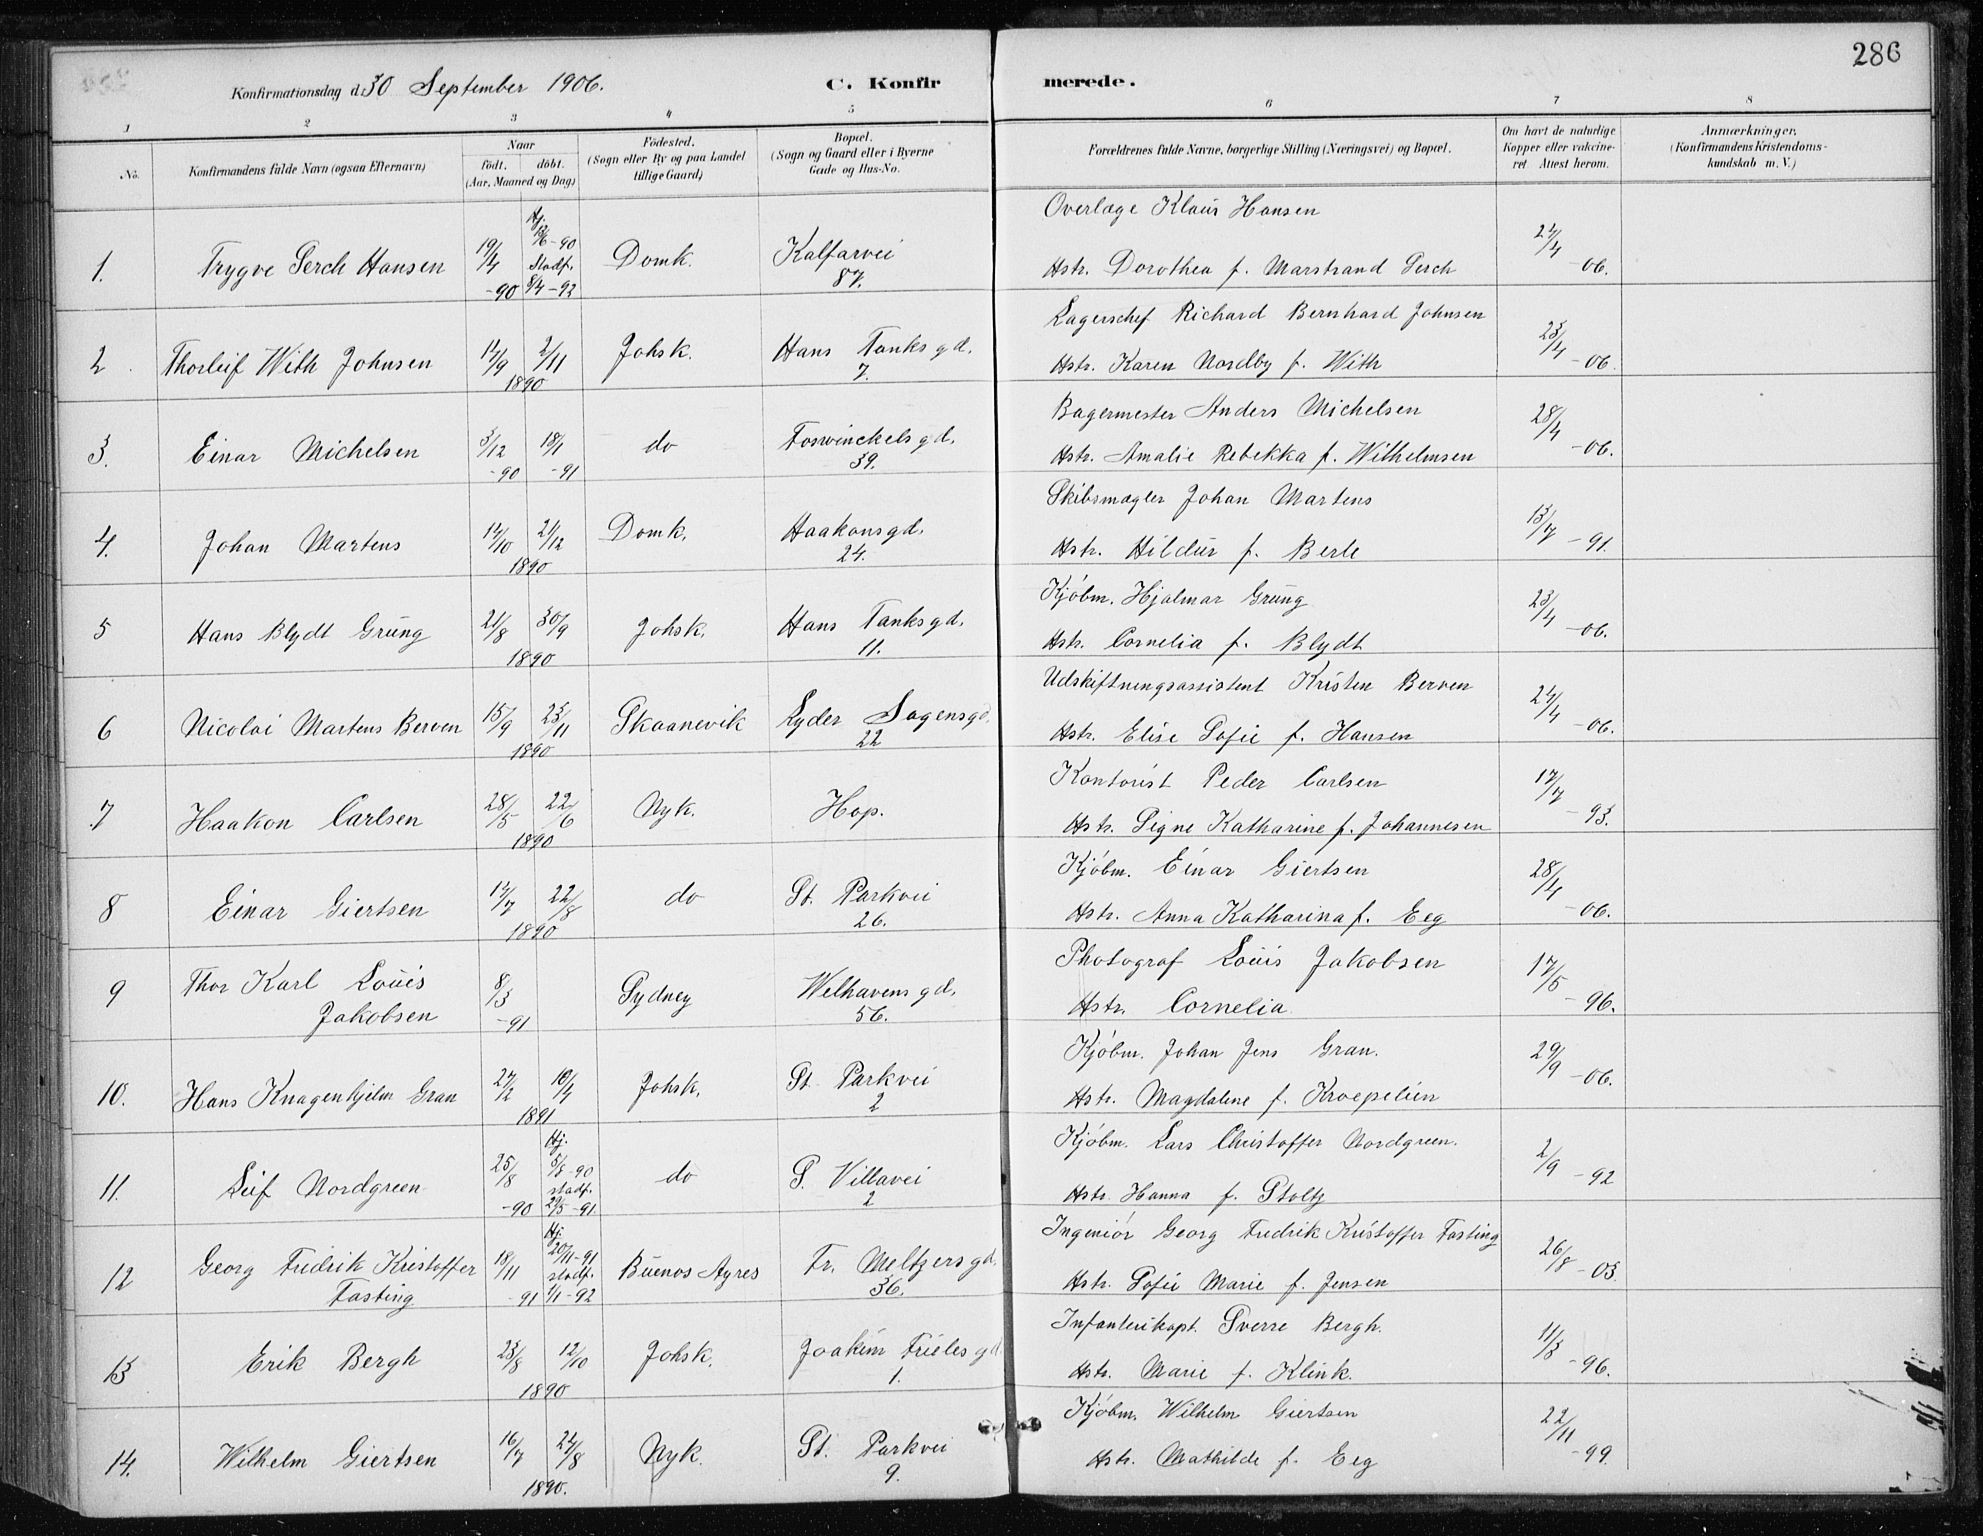 286
Konfirmationsdag d. 30 September 1906.
C. Konfirmerede.
1 2 3 4 5 6 7 8
No.
Konfirmandens fulde Navn (ogsaa Efternavn)
Naar
födt. döbt.
(Aar, Maaned og Dag)
Födested.
(Sogn eller By og paa Landet
tillige Gaard)
Bopæl.
(Sogn og Gaard eller i Byerne
Gade og Hus-No.
Forældrenes fulde Navne, borgerlige Stilling (Næringsvei) og Bopæl.
Om havt de naturlige
Kopper eller vakcine-
ret Attest herom.
Anmærkninger.
(Konfirmandens Kristendoms-
kundskab m. V.)
1. Trygve Serch Hansen 19/4 -90 Hj. 12/6 -90 Stadf. 8/4 -92 Domk. Kalfarvei 87. Overlæge Klaus Hansen
Hstr. Dorothea f. Marstrand Serch 27/4 -06.
2. Thorleif With Johnsen 17/9 2/11 1890 Johsk. Hans Tanksgd. 7. Lagerschef Richard Bernhard Johnsen
Hstr. Karen Nordby f. With 23/4 -06.
3. Einar Michelsen 3/12 -90 18/1 -91 do Foswinckelsgd. 39. Bagermester Anders Michelsen
Hstr. Amalie Rebekka f. Wilhelmsen 28/4 -06.
4. Johan Martens 17/10 21/12 1890 Domk. Haakonsgd. 24. Skibsmægler Johan Martens
Hstr. Hildur f. Berle 13/7 -91.
5 Hans Blydt Grung 21/8 30/9 1890 Johsk. Hans Tanksgd. 11. Kjöbm. Hjalmar Grung
Hstr. Cornelia f. Blydt 23/4 -06.
6 Nicolai Martens Berven 15/9 23/11 1890 Skaanevik Lyder Sagensgd. 22 Udskiftningsassistent Kristen Berven
Hstr. Elise Sofie f. Hansen 27/4 -06.
7 Haakon Carlsen 28/5 22/6 1890 Nyk. Hop. Kontorist Peder Carlsen
Hstr. Signe Katharine f. Johannesen 17/7 -93.
8 Einar Giertsen 17/7 22/8 1890 do St. Parkvei 26. Kjöbm. Einar Giertsen
Hstr. Anna Katharina f. Eeg 28/4 -06.
9 Thor Karl Louis Jakobsen 8/3 -91 Sydney Welhavensgd. 56. Photograf Louis Jakobsen
Hstr. Cornelia 17/5 -96.
10. Hans Knagenhjelm Gran 27/2 10/4 1891 Johsk. St. Parkvei 2 Kjöbm. Johan Jens Gran.
Hstr. Magdalene f. Kroepelien 29/9 -06.
11. Leif Nordgreen 25/8 -90 Hj. -90 stadf. 29/5 -91 do S. Villavei 2 Kjöbm. Lars Christoffer Nordgreen.
Hstr. Hanna f. Stoltz 2/9 -92
12 Georg Fredrik Kristoffer Fasting 18/11 -91 Hj. 20/11 -91 stadf. 1/1 -92 Buenos Ayres Fr. Meltzersgd. 36. Ingeniör Georg Fredrik Kristoffer Fasting
Hstr. Sofie Marie f. Jensen 26/8 -03.
13 Erik Bergh 23/8 12/10 1890 Johsk. Joakim Frielesgd. 1. Infanterikapt. Sverre Bergh.
Hstr. Marie f. Klink. 11/3 -96.
14. Wilhelm Giertsen 16/7 24/8 1890. Nyk. St. Parkvei 9. Kjöbm. Wilhelm Giertsen
Hstr. Mathilde f. Eeg 22/11 -99.